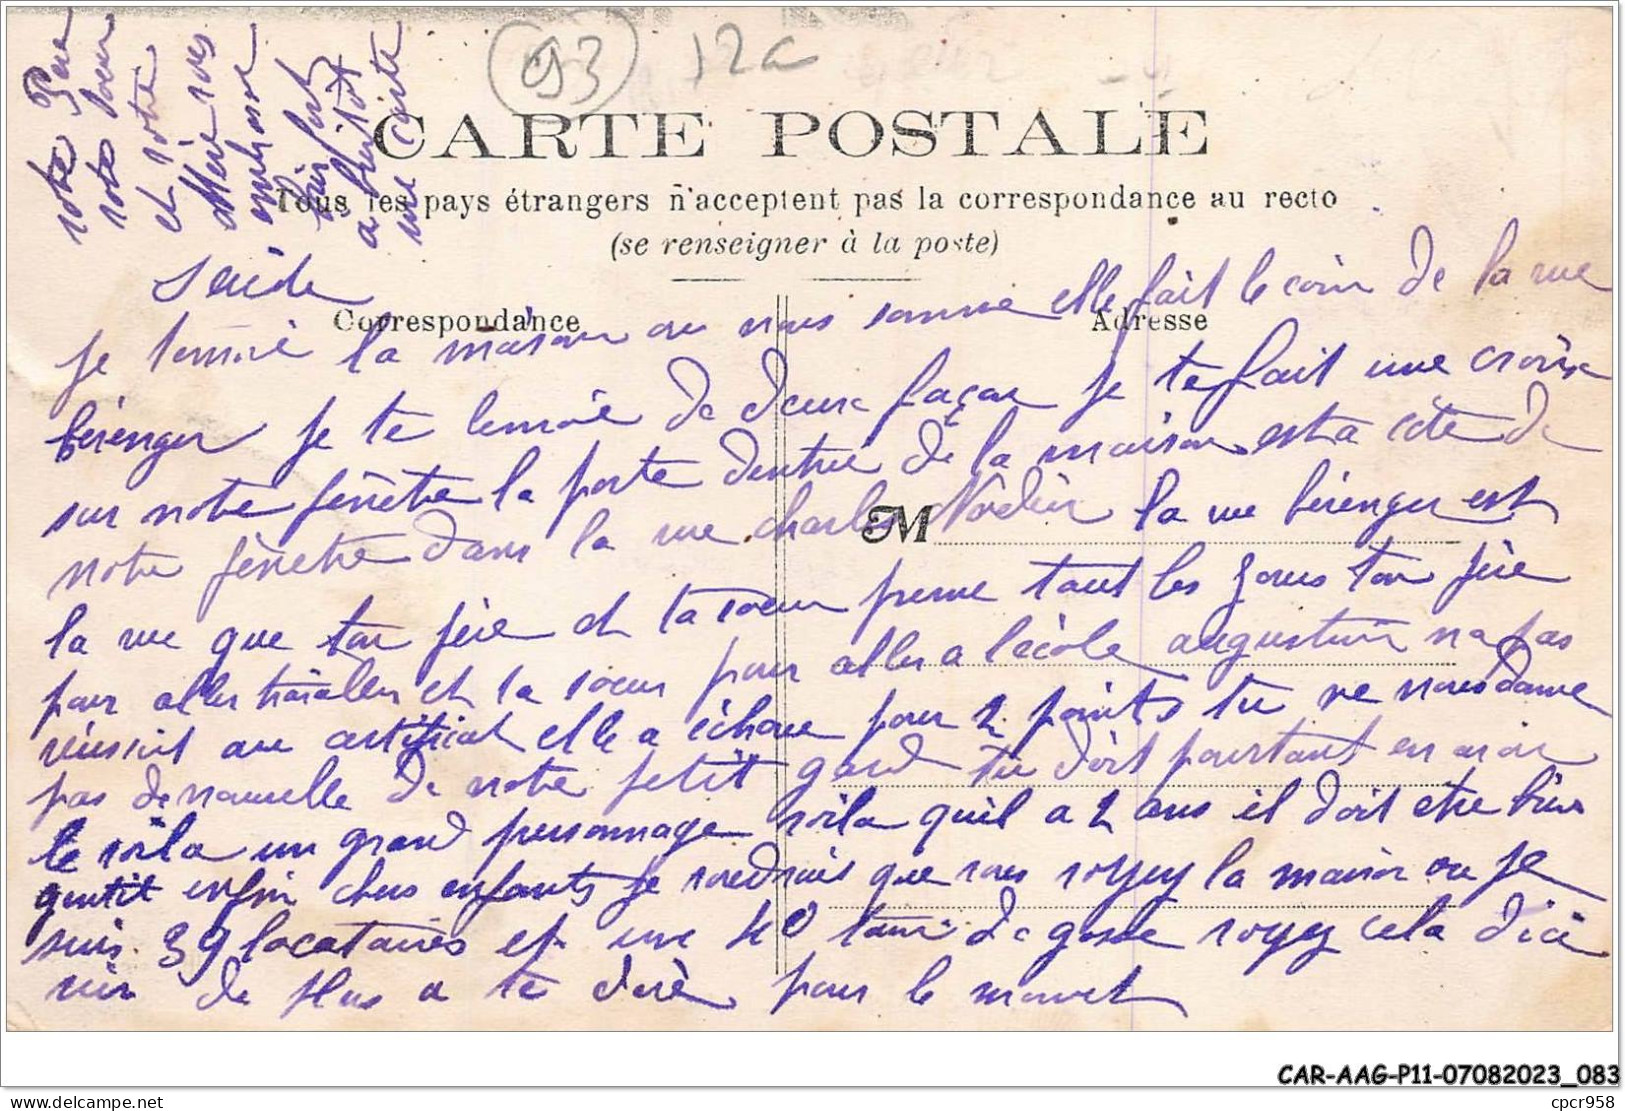 93 12a
votre Père
votre soeur
et votre
Mère vous
embrasse
bien fort
a bientot
une carte
CARTE POSTALE
Tous les pays étrangers n'acceptent pas la correspondance au recto
(se renseigner à la poste)
Correspondance
Adresse
M
je la maison ou nous somme elle fait le coin de la rue
bérenger je te de deux façon je te fait une croix
sur notre fenêtre la porte dentrée de la maison est a côté de
notre fenêtre dans la rue charles Nodier la rue bérenger est
la rue que ton père et ta soeur prene tout les jours ton père
pour aller travaller et ta soeur pour aller a lécole augustine na pas
réussit au certificat elle a échoue pour 2 points tu ne nous donne
pas de nouvelle de notre petit gars tu doit pourtant en avoir
le voila un grand personnage voila quil a 2 ans il doit etre bien
gentit enfin chers enfants je voudrais que vous voyez la maison ou je
suis 39 locataires et une 40 de gosse voyez cela dici
rien de plus a te dire pour le moment
CAR-AAG-P11-07082023_083
delcampe.net
cpcr958